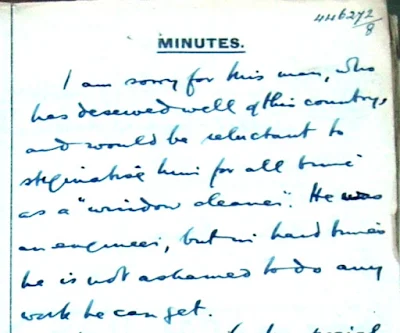 446272/8
MINUTES.
I am sorry for this man, who
has deserved well of this country,
and would be reluctant to
stigmatise him for all time
as a "window cleaner". He was
an engineer, but in hard times
he is not ashamed to do any
work he can get.